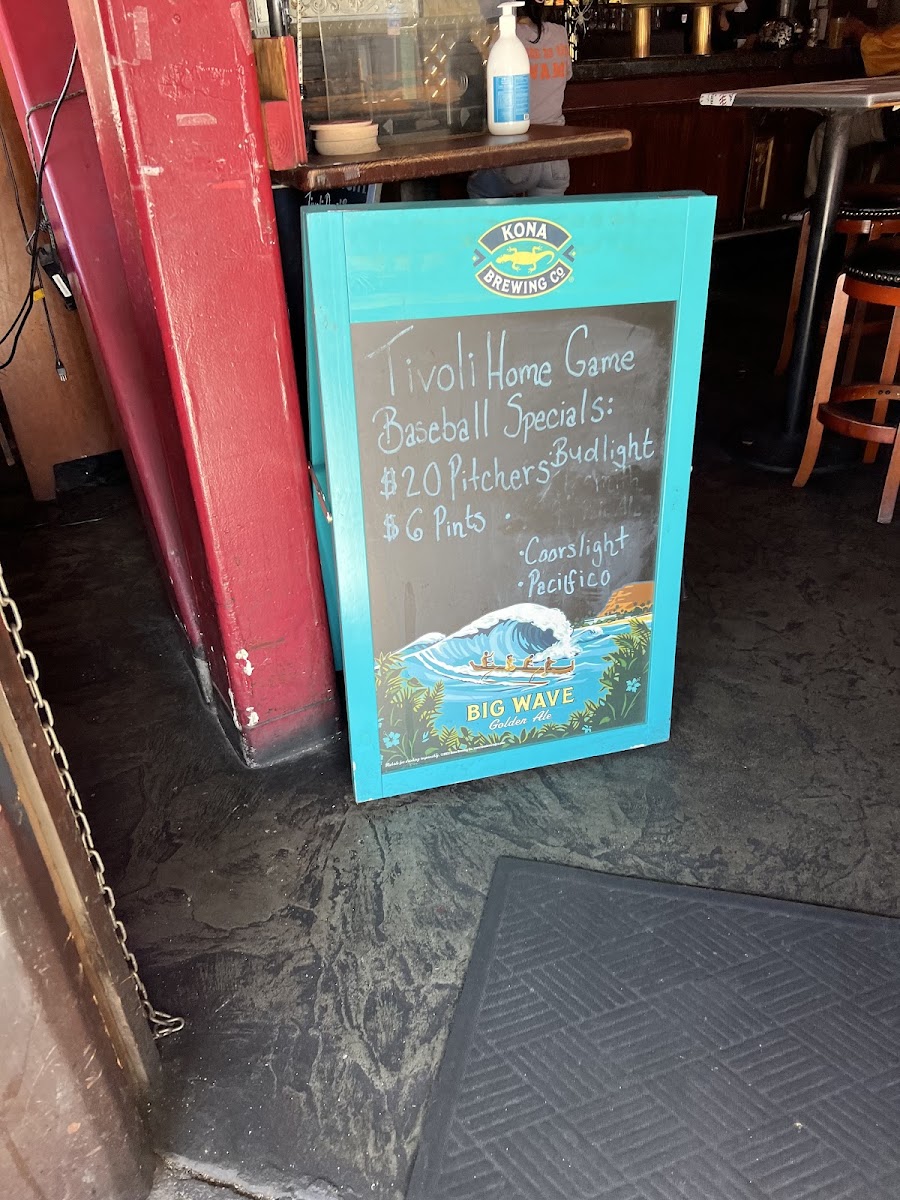 KONA
BREWING Co
Tivoli Home Game
Baseball Specials:
$20 Pitchers · Budlight
$6 Pints ·
· Coorslight
· Pacifico
BIG WAVE
Golden Ale